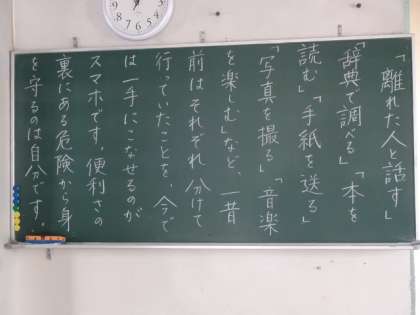 「離れた人と話す」
「辞典で調べる」「本を
読む」「手紙を送る」
「写真を撮る」「音楽
を楽しむ」など、一昔
前はそれぞれ分けて
行っていたことを、今で
は一手にこなせるのが
スマホです。便利さの
裏にある危険から身
を守るのは自分です。